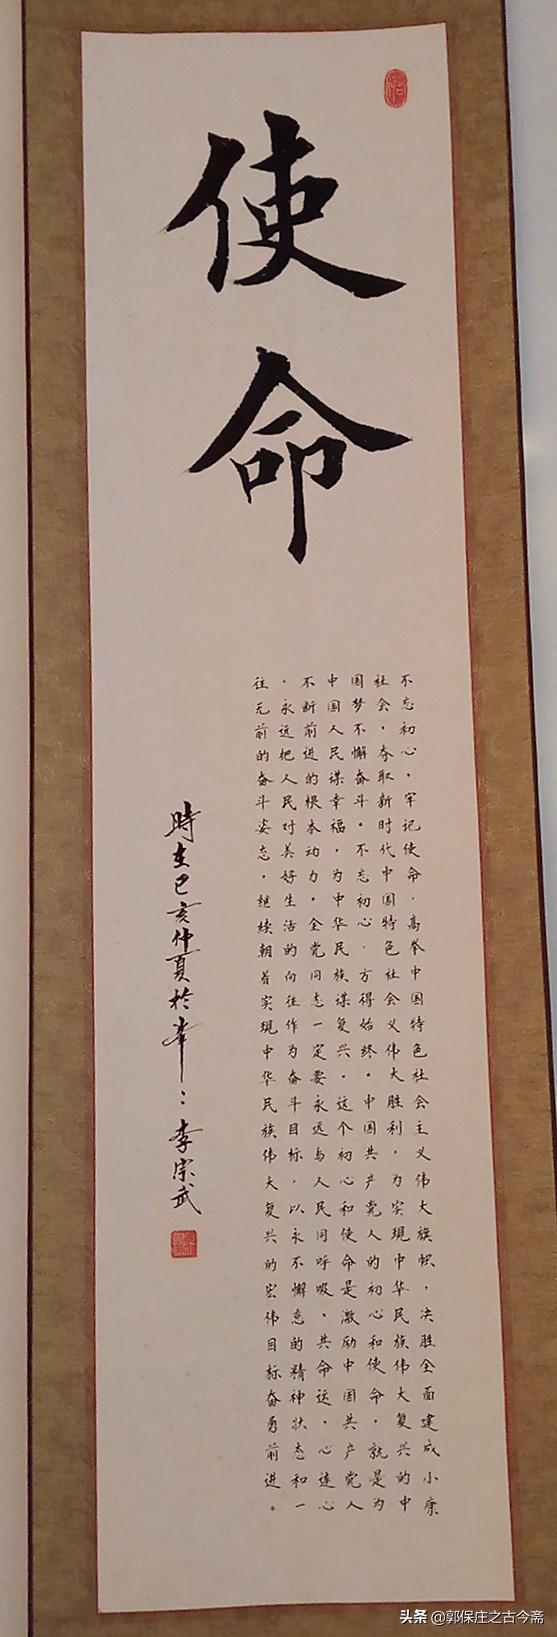 使
命
不忘初心，牢记使命，高举中国特色社会主义伟大旗帜，决胜全面建成小康
社会，夺取新时代中国特色社会义伟大胜利，为实现中华民族伟大复兴的中
国梦不懈奋斗。不忘初心，方得始终。中国共产党人的初心和使命，就是为
中国人民谋幸福，为中华民族谋复兴。这个初心和使命是激励中国共产党人
不断前进的根本动力。全党同志一定要永远与人民同呼吸、共命运、心连心
，永远把人民对美好生活的向往作为奋斗目标，以永不懈怠的精神状态和一
往无前的奋斗姿态，继续朝着实现中华民族伟大复兴的宏伟目标奋勇前进。
時在己亥仲夏於 李宗武
头条 @郭保庄之古今斋